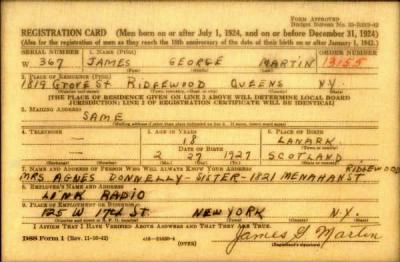 FORM APPROVED
REGISTRATION CARD—(Men born on or after July 1, 1924, and on or before December 31, 1924)
(Also for the registration of men as they reach the 18th anniversary of the date of their birth on or after January 1, 1942.)
SERIAL NUMBER 1. NAME (Print) ORDER NUMBER
W 367 JAMES GEORGE MARTIN 13155
2. PLACE OF RESIDENCE (Print)
1819 GROVE ST RIDGEWOOD QUEENS N.Y.
[THE PLACE OF RESIDENCE GIVEN ON LINE 2 ABOVE WILL DETERMINE LOCAL BOARD
JURISDICTION; LINE 2 OF REGISTRATION CERTIFICATE WILL BE IDENTICAL]
3. MAILING ADDRESS
SAME
4. TELEPHONE 5. AGE IN YEARS 6. PLACE OF BIRTH
18 LANARK
DATE OF BIRTH
2 27 1927 SCOTLAND
7. NAME AND ADDRESS OF PERSON WHO WILL ALWAYS KNOW YOUR ADDRESS RIDGEWOOD
MRS AGNES DONNELLY-SISTER-1821 MENAHAN ST
8. EMPLOYER'S NAME AND ADDRESS
LINK RADIO
9. PLACE OF EMPLOYMENT OR BUSINESS
125 W 17th ST. NEW YORK N.Y.
I AFFIRM THAT I HAVE VERIFIED ABOVE ANSWERS AND THAT THEY ARE TRUE.
DSS Form 1 (Rev. 11-16-42) (OVER) James G Martin
(Registrant's signature)